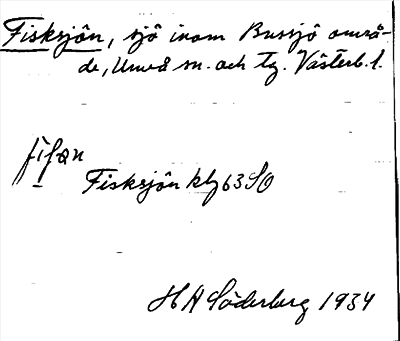 Fisksjön, sjö inom Bussjö områ-
de, Umeå sn. och tg. Västerb. l.
fifan
Fisksjön klg 63 SO
H A Söderberg 1934